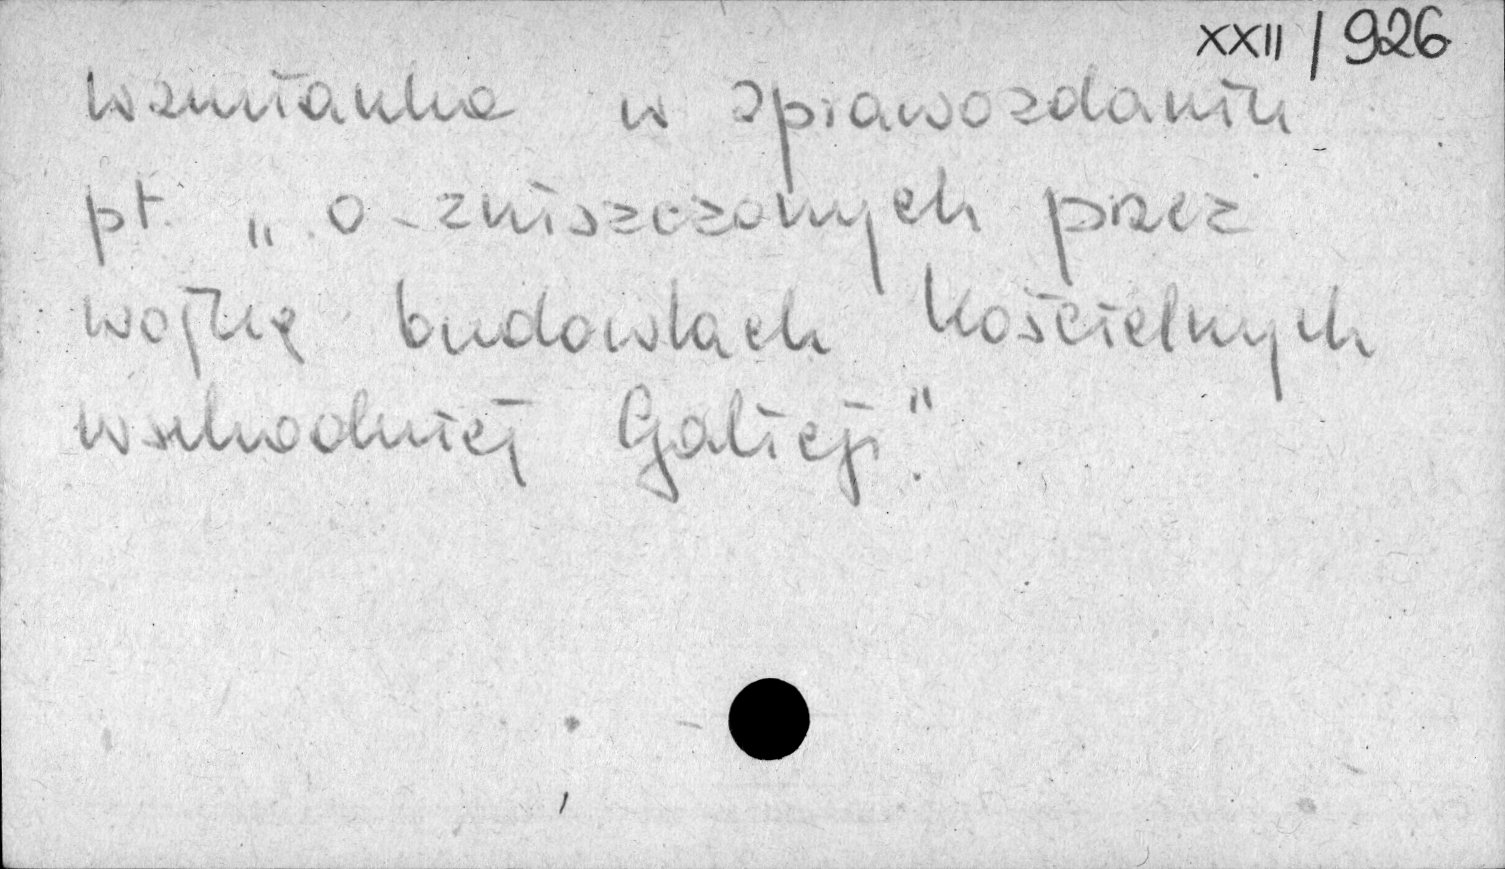 XXII/926
wzmianka w sprawozdaniu
pt. „o zniszczonych przez
wojnę budowlach kościelnych
wschodniej Galicji".